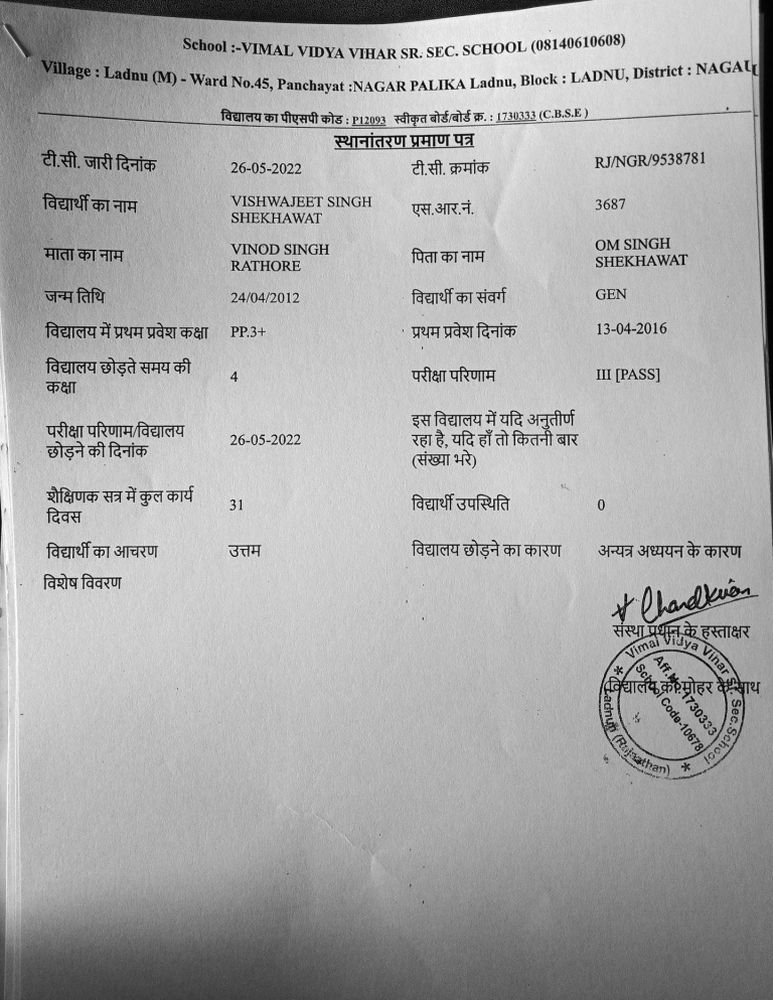 School :-VIMAL VIDYA VIHAR SR. SEC. SCHOOL (08140610608)
Village : Ladnu (M) - Ward No.45, Panchayat :NAGAR PALIKA Ladnu, Block : LADNU, District : NAGAU
विद्यालय का पीएसपी कोड : P12093 स्वीकृत बोर्ड/बोर्ड क्र. : 1730333 (C.B.S.E )
स्थानांतरण प्रमाण पत्र
टी.सी. जारी दिनांक 26-05-2022 टी.सी. क्रमांक RJ/NGR/9538781
विद्यार्थी का नाम VISHWAJEET SINGH SHEKHAWAT एस.आर.नं. 3687
माता का नाम VINOD SINGH RATHORE पिता का नाम OM SINGH SHEKHAWAT
जन्म तिथि 24/04/2012 विद्यार्थी का संवर्ग GEN
विद्यालय में प्रथम प्रवेश कक्षा PP.3+ प्रथम प्रवेश दिनांक 13-04-2016
विद्यालय छोड़ते समय की कक्षा 4 परीक्षा परिणाम III [PASS]
परीक्षा परिणाम/विद्यालय छोड़ने की दिनांक 26-05-2022 इस विद्यालय में यदि अनुतीर्ण रहा है, यदि हाँ तो कितनी बार (संख्या भरे)
शैक्षिणक सत्र में कुल कार्य दिवस 31 विद्यार्थी उपस्थिति 0
विद्यार्थी का आचरण उत्तम विद्यालय छोड़ने का कारण अन्यत्र अध्ययन के कारण
विशेष विवरण
संस्था प्रधान के हस्ताक्षर
विद्यालय की मोहर के साथ
Vimal Vidya Vihar Sr. Sec. School
Aff. No. 1730333
School Code-10678
Ladnun (Rajasthan)